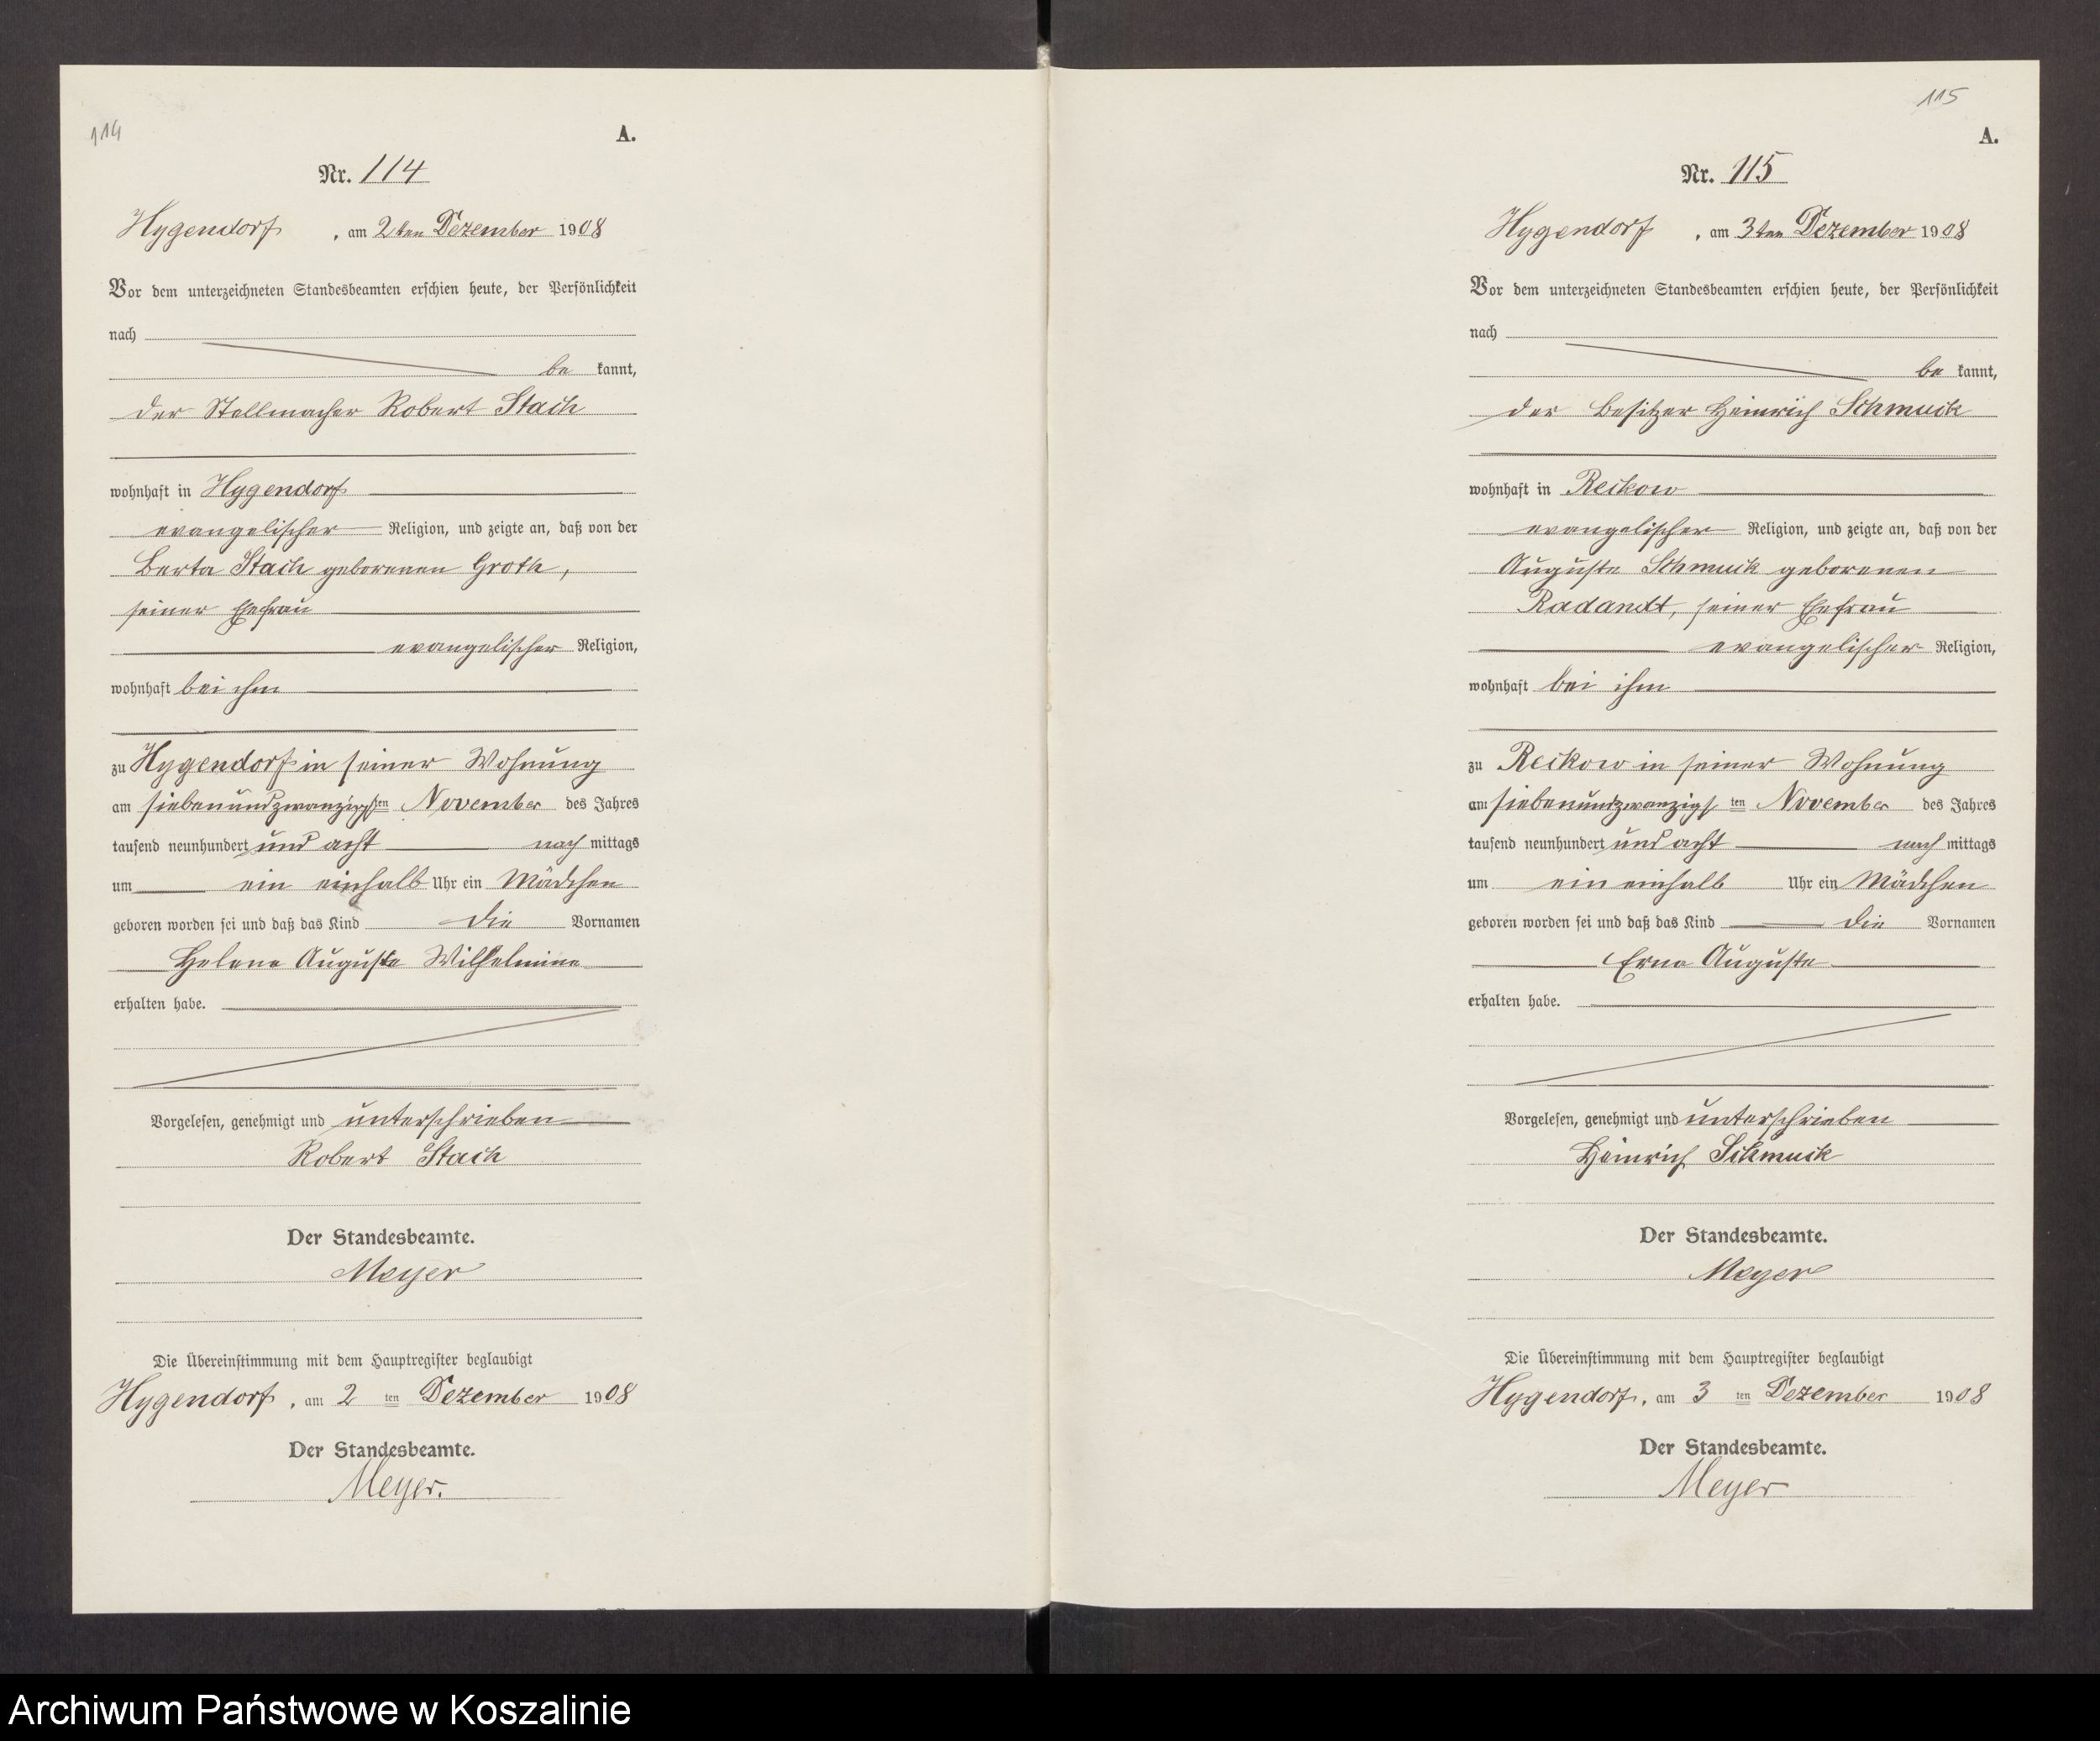 114
A.
Nr. 114
Hygendorf, am 2ten Dezember 1908
Vor dem unterzeichneten Standesbeamten erschien heute, der Persönlichkeit
nach
be kannt,
der Stellmacher Robert Stach
wohnhaft in Hygendorf
evangelischer Religion, und zeigte an, daß von der
Berta Stach geborenen Groth,
seiner Ehefrau
evangelischer Religion,
wohnhaft bei ihm
zu Hygendorf in seiner Wohnung
am siebenundzwanzigsten November des Jahres
tausend neunhundert und acht nach mittags
um ein einhalb Uhr ein Mädchen
geboren worden sei und daß das Kind die Vornamen
Helene Auguste Wilhelmine
erhalten habe.
Vorgelesen, genehmigt und unterschrieben
Robert Stach
Der Standesbeamte.
Meyer
Die Übereinstimmung mit dem Hauptregister beglaubigt
Hygendorf, am 2 ten Dezember 1908
Der Standesbeamte.
Meyer.
115
A.
Nr. 115
Hygendorf, am 3ten Dezember 1908
Vor dem unterzeichneten Standesbeamten erschien heute, der Persönlichkeit
nach
be kannt,
der Besitzer Heinrich Schmuck
wohnhaft in Reckow
evangelischer Religion, und zeigte an, daß von der
Auguste Schmuck geborenen
Radandt, seiner Ehefrau
evangelischer Religion,
wohnhaft bei ihm
zu Reckow in seiner Wohnung
am siebenundzwanzigsten November des Jahres
tausend neunhundert und acht nach mittags
um ein einhalb Uhr ein Mädchen
geboren worden sei und daß das Kind die Vornamen
Erna Auguste
erhalten habe.
Vorgelesen, genehmigt und unterschrieben
Heinrich Schmuck
Der Standesbeamte.
Meyer
Die Übereinstimmung mit dem Hauptregister beglaubigt
Hygendorf, am 3 ten Dezember 1908
Der Standesbeamte.
Meyer
Archiwum Państwowe w Koszalinie